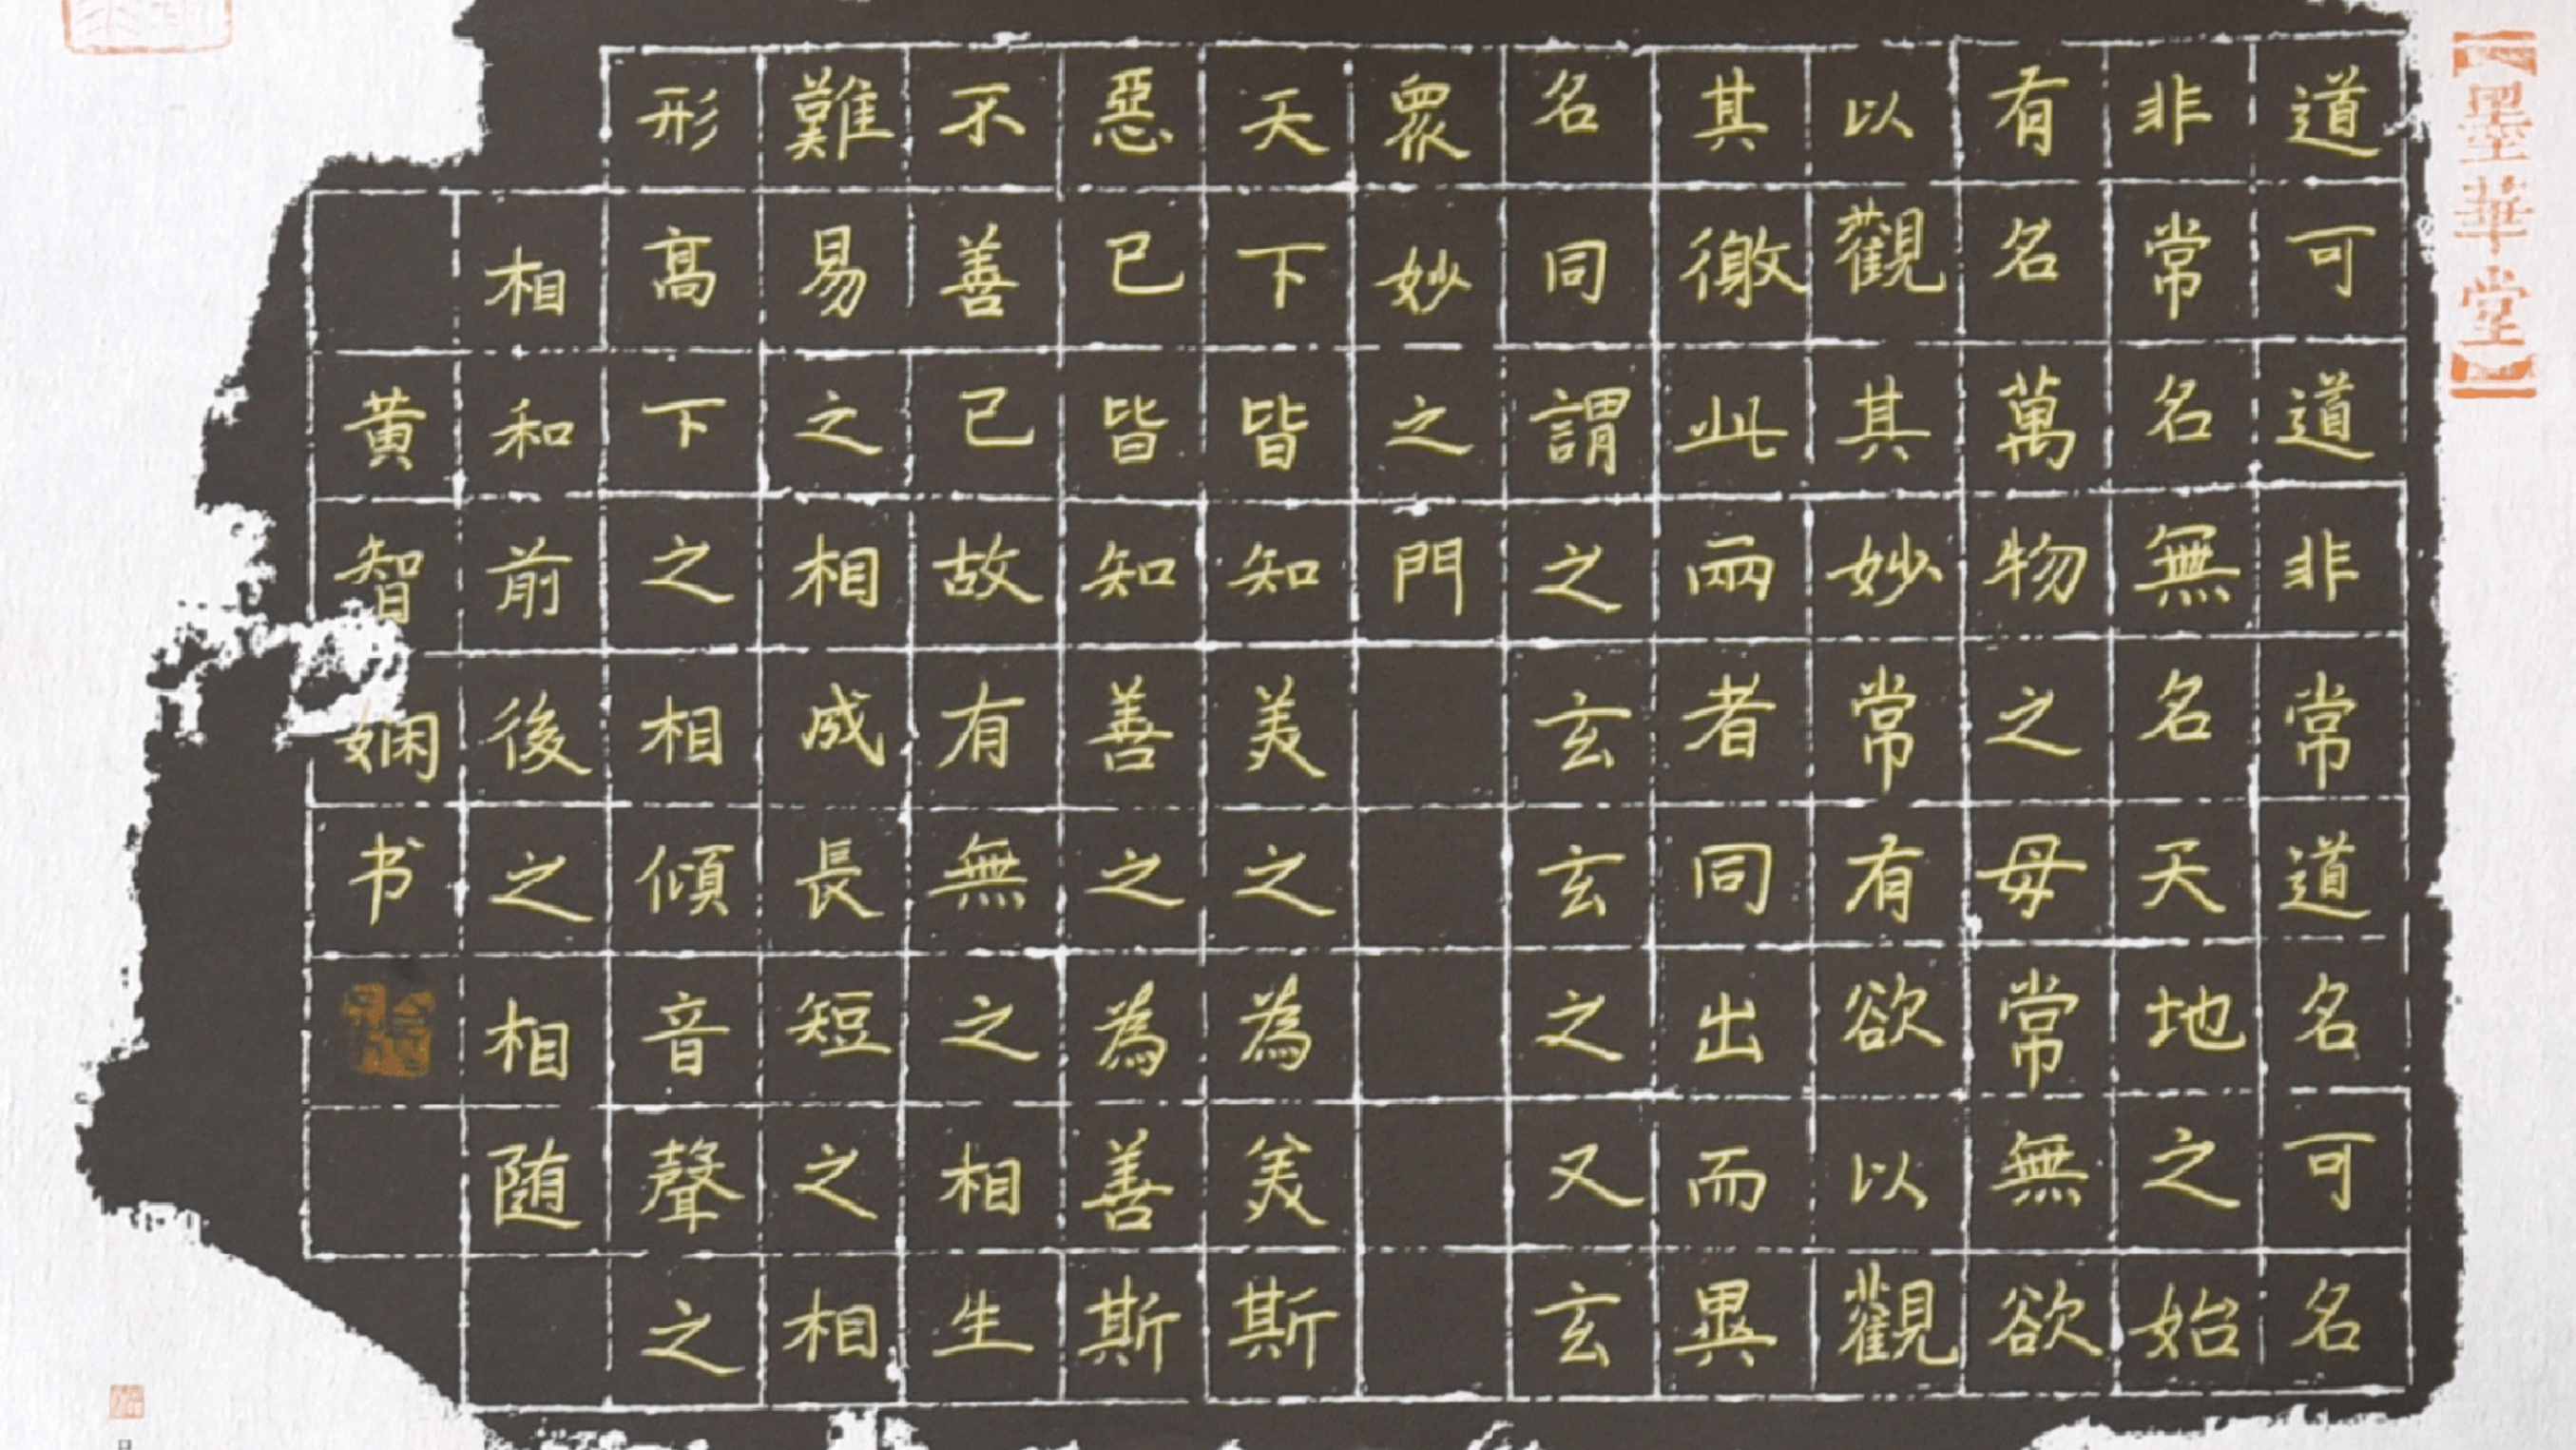 【墨華堂】
道可道非常道名可名
非常名無名天地之始
有名萬物之母常無欲
以觀其妙常有欲以觀
其徼此兩者同出而異
名同謂之玄玄之又玄
眾妙之門
天下皆知美之為美斯
惡已皆知善之為善斯
不善已故有無之相生
難易之相成長短之相
形高下之相傾音聲之
相和前後之相随
黄智娴书